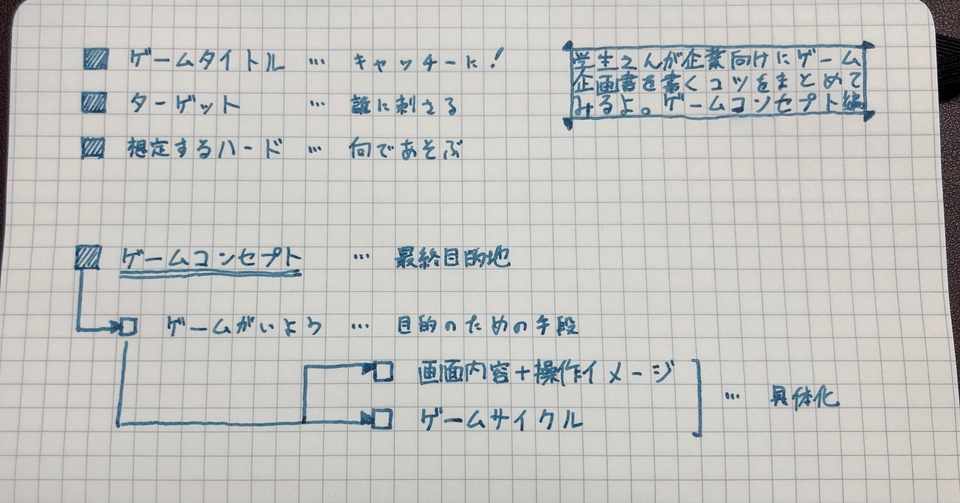 ゲームタイトル … キャッチーに!
ターゲット … 誰に刺さる
想定するハード … 何であそぶ
学生さんが企業向けにゲーム
企画書を書くコツをまとめて
みるよ。ゲームコンセプト編
ゲームコンセプト … 最終目的地
ゲームがいよう … 目的のための手段
画面内容+操作イメージ
ゲームサイクル
… 具体化